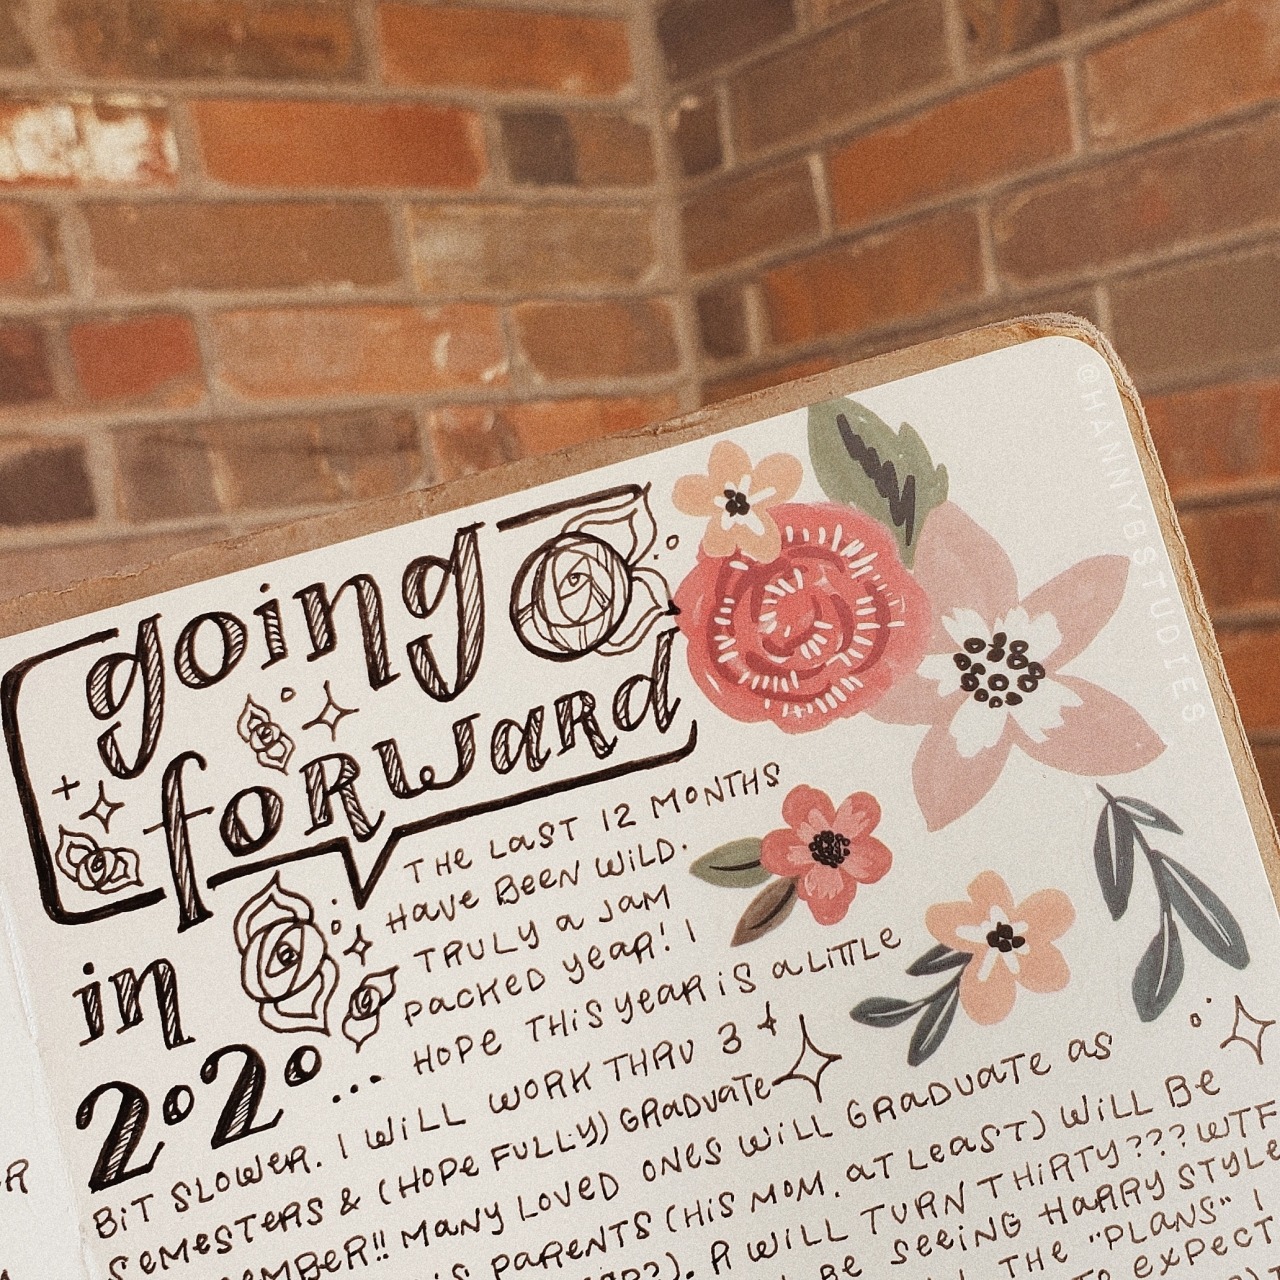 going
forward
in
2020...
THE LAST 12 MONTHS
HAVE BEEN WILD.
TRULY A JAM
PACKED YEAR! I
HOPE THIS YEAR IS A LITTLE
BIT SLOWER. I WILL WORK THRU 3
SEMESTERS & (HOPEFULLY) GRADUATE
EMBER!! MANY LOVED ONES WILL GRADUATE AS
PARENTS (HIS MOM, AT LEAST) WILL BE
R WILL TURN THIRTY??? WTF
BE SEEING HARRY STYLE
THE "PLANS" I
TO EXPECT
@HANNYBSTUDIES